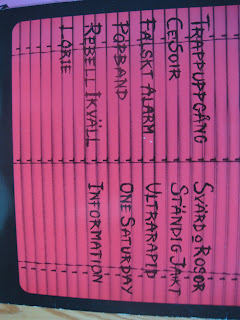 TRAPPUPPGÅNG
CENSUR
FALSKT ALARM
POPBAND
REBELL IKVÄLL
LORIE
SVÄRD O ROSOR
STÄNDIG JAKT
ULTRARAPID
ONE SATURDAY
INFORMATION